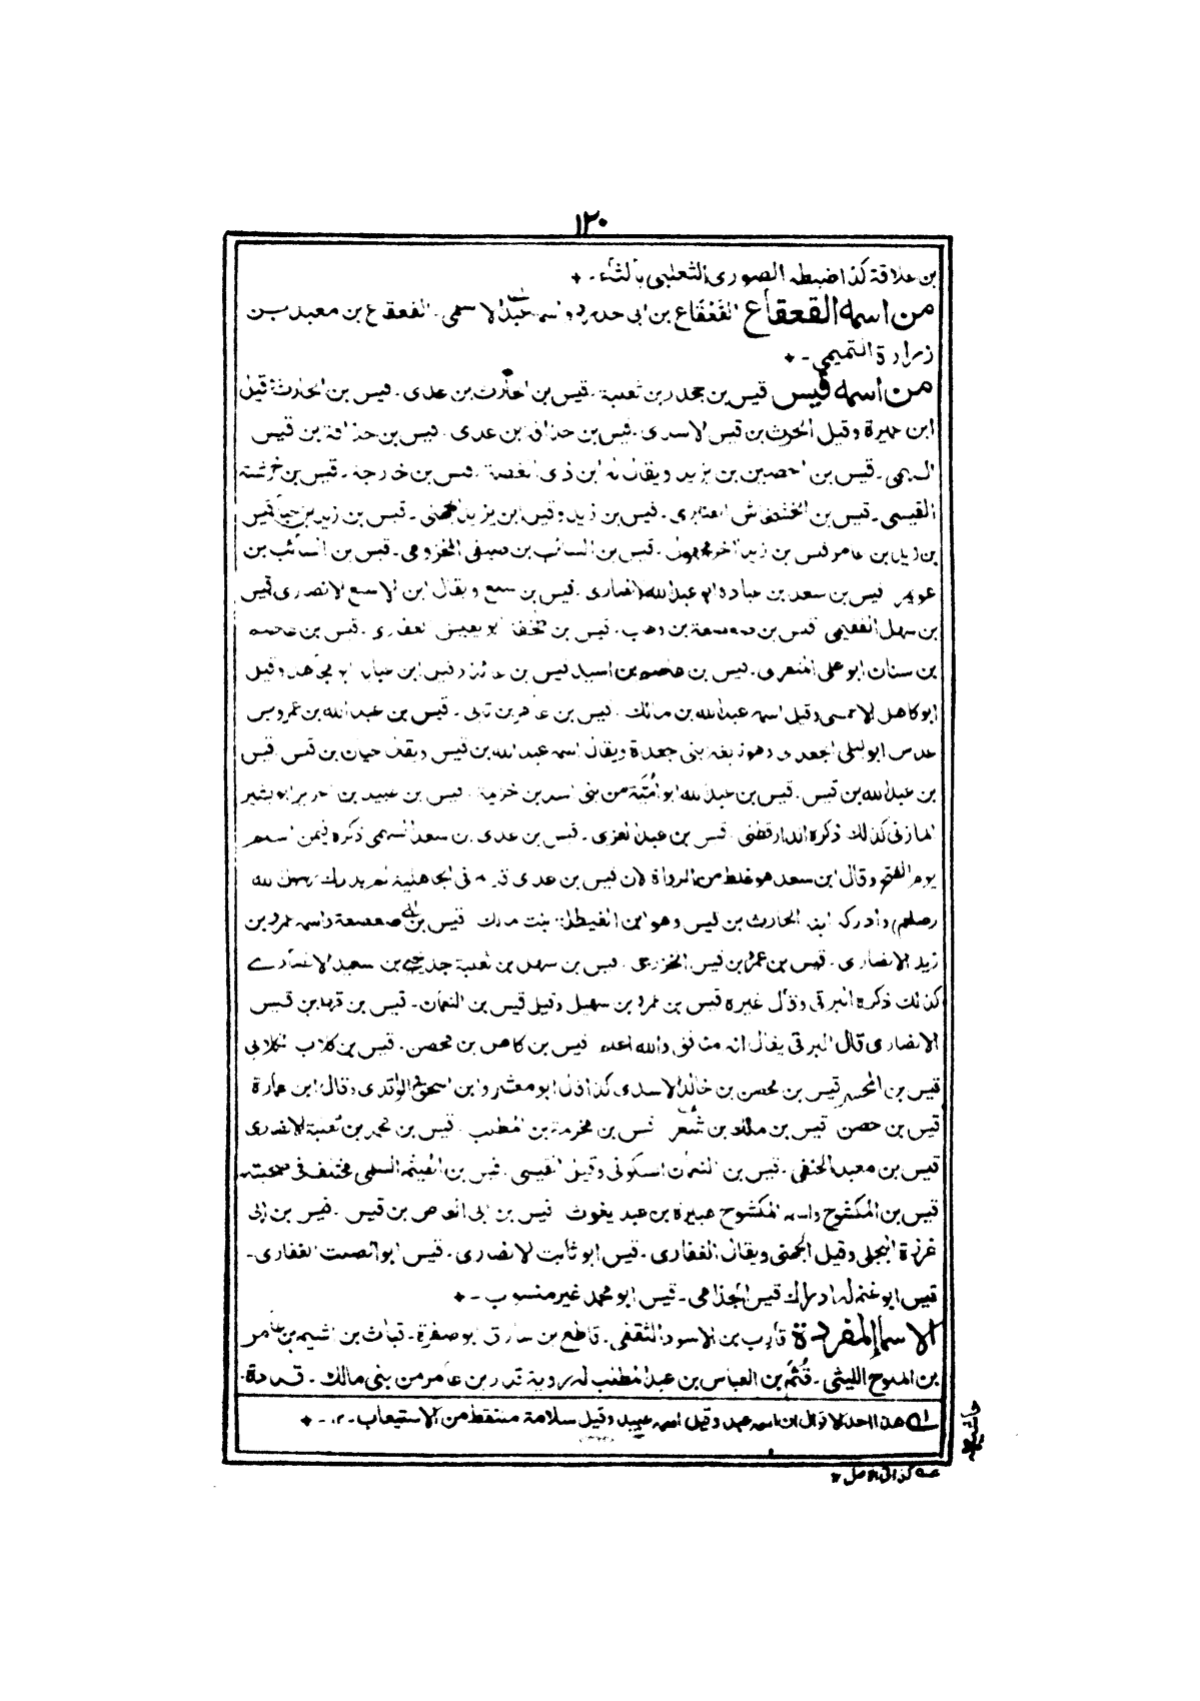 ١٢٠
بن علاقة كذا ضبطه الصورى الثعلبى بالثاء - *
من اسمه القعقاع القَعْقَاع بن ابى حدرد واسمه عبد الله الاسلمى - القعقاع بن معبد بن
زرارة التميمى - *
من اسمه قيس قيس بن جحدر بن ثعلبة - قيس بن الحارث بن عدى - قيس بن الحارث وقيل
ابن عميرة وقيل الحرث بن قيس الاسدى - قيس بن حذافة بن عدى - قيس بن حذافة بن قيس
السهمى - قيس بن الحصين بن يزيد ويقال له ابن ذى الغصة - قيس بن خارجة - قيس بن خرشة
القيسى - قيس بن الخشخاش العنبرى - قيس بن زيد وقيل ابن يزيد الجهنى - قيس بن زيد بن قيس
بن زيد بن عامر قيس بن زيد آخر مجهول - قيس بن السائب بن صيفى المخزومى - قيس بن السائب بن
عويمر قيس بن سعد بن عبادة ابو عبد الله الانصارى - قيس بن سلع ويقال ابن الاسلع الانصارى قيس
بن سهل قيس بن صعصعة بن وهب - قيس بن طخفة ابو يعيش الغفارى - قيس بن عاصم
بن سنان ابو على المنقرى - قيس بن عاصم بن اسيد قيس بن عائذ وقيل ابن وقيل
ابو كاهل الاحمسى وقيل اسمه عبد الله بن مالك - قيس بن عبد الله بن عمرو بن
عدس ابو ليلى الجعدى وهو نابغة بنى جعدة ويقال اسمه عبد الله بن قيس ويقال حيان بن قيس قيس
بن عبد الله بن قيس - قيس بن عبد الله ابو اُمَيَّة من بنى اسد بن خزيمة - قيس بن عبيد بن الحرير ابو بشير
المازنى كذلك ذكره الدارقطنى - قيس بن عبد العزى - قيس بن عدى بن سعد السهمى ذكره فيمن اسلم
يوم الفتح وقال ابن سعد هو غلط من الرواة لان قيس بن عدى فى الجاهلية لم يدرك رسول الله
(صلعم) وادركه ابنه الحارث بن قيس وهو ابن الغيطلة بنت مالك - قيس بن ابى صعصعة واسمه عمرو بن
زيد الانصارى - قيس بن عمرو بن قيس الخزرجى - قيس بن سهل بن ثعلبة جد يحيى بن سعيد الانصارى
كذلك ذكره البرقى وقال غيره قيس بن عمرو بن سهيل وقيل قيس بن النعمان - قيس بن بن قيس
الانصارى قال البرقى يقال انه منافق والله اعلم قيس بن بن محصن - قيس بن كلاب الكلابى
قيس بن المحسر قيس بن محصن بن خالد الاسدى كذا قال ابو معشر وابن اسحق الواقدى وقال ابن عمارة
قيس بن حصن قيس بن مالك بن قيس بن مخرمة بن المطلب - قيس بن بن ثعلبة الانصارى
قيس بن معبد الحنفى - قيس بن النعمان السكونى وقيل القيسى - قيس بن الهيثم السلمى مختلف فى صحبته
قيس بن المكشوح واسم المكشوح هبيرة بن عبد يغوث قيس بن ابى العاص بن قيس - قيس بن ابى
غرزة البجلى وقيل الجهنى ويقال الغفارى - قيس ابو ثابت الانصارى - قيس ابو الصلت الغفارى -
قيس ابو غنم له ادراك قيس الجذامى - قيس ابو محمد غير منسوب - *
الاسماء المفردة قارب بن الاسود الثقفى - قاطع بن سارق ابو صفرة - قباث بن اشيم بن عامر
بن الملوح الليثى - قُثَم بن العباس بن عبد المطلب له روية قدد بن عامر من بنى مالك - قدامة -
هذا احد الاقوال ان اسمه عبد وقيل اسمه عبيد وقيل سلامة ملتقط من الاستيعاب - ١٢ - *
حاشية
عه كذا فى الاصل ١٢